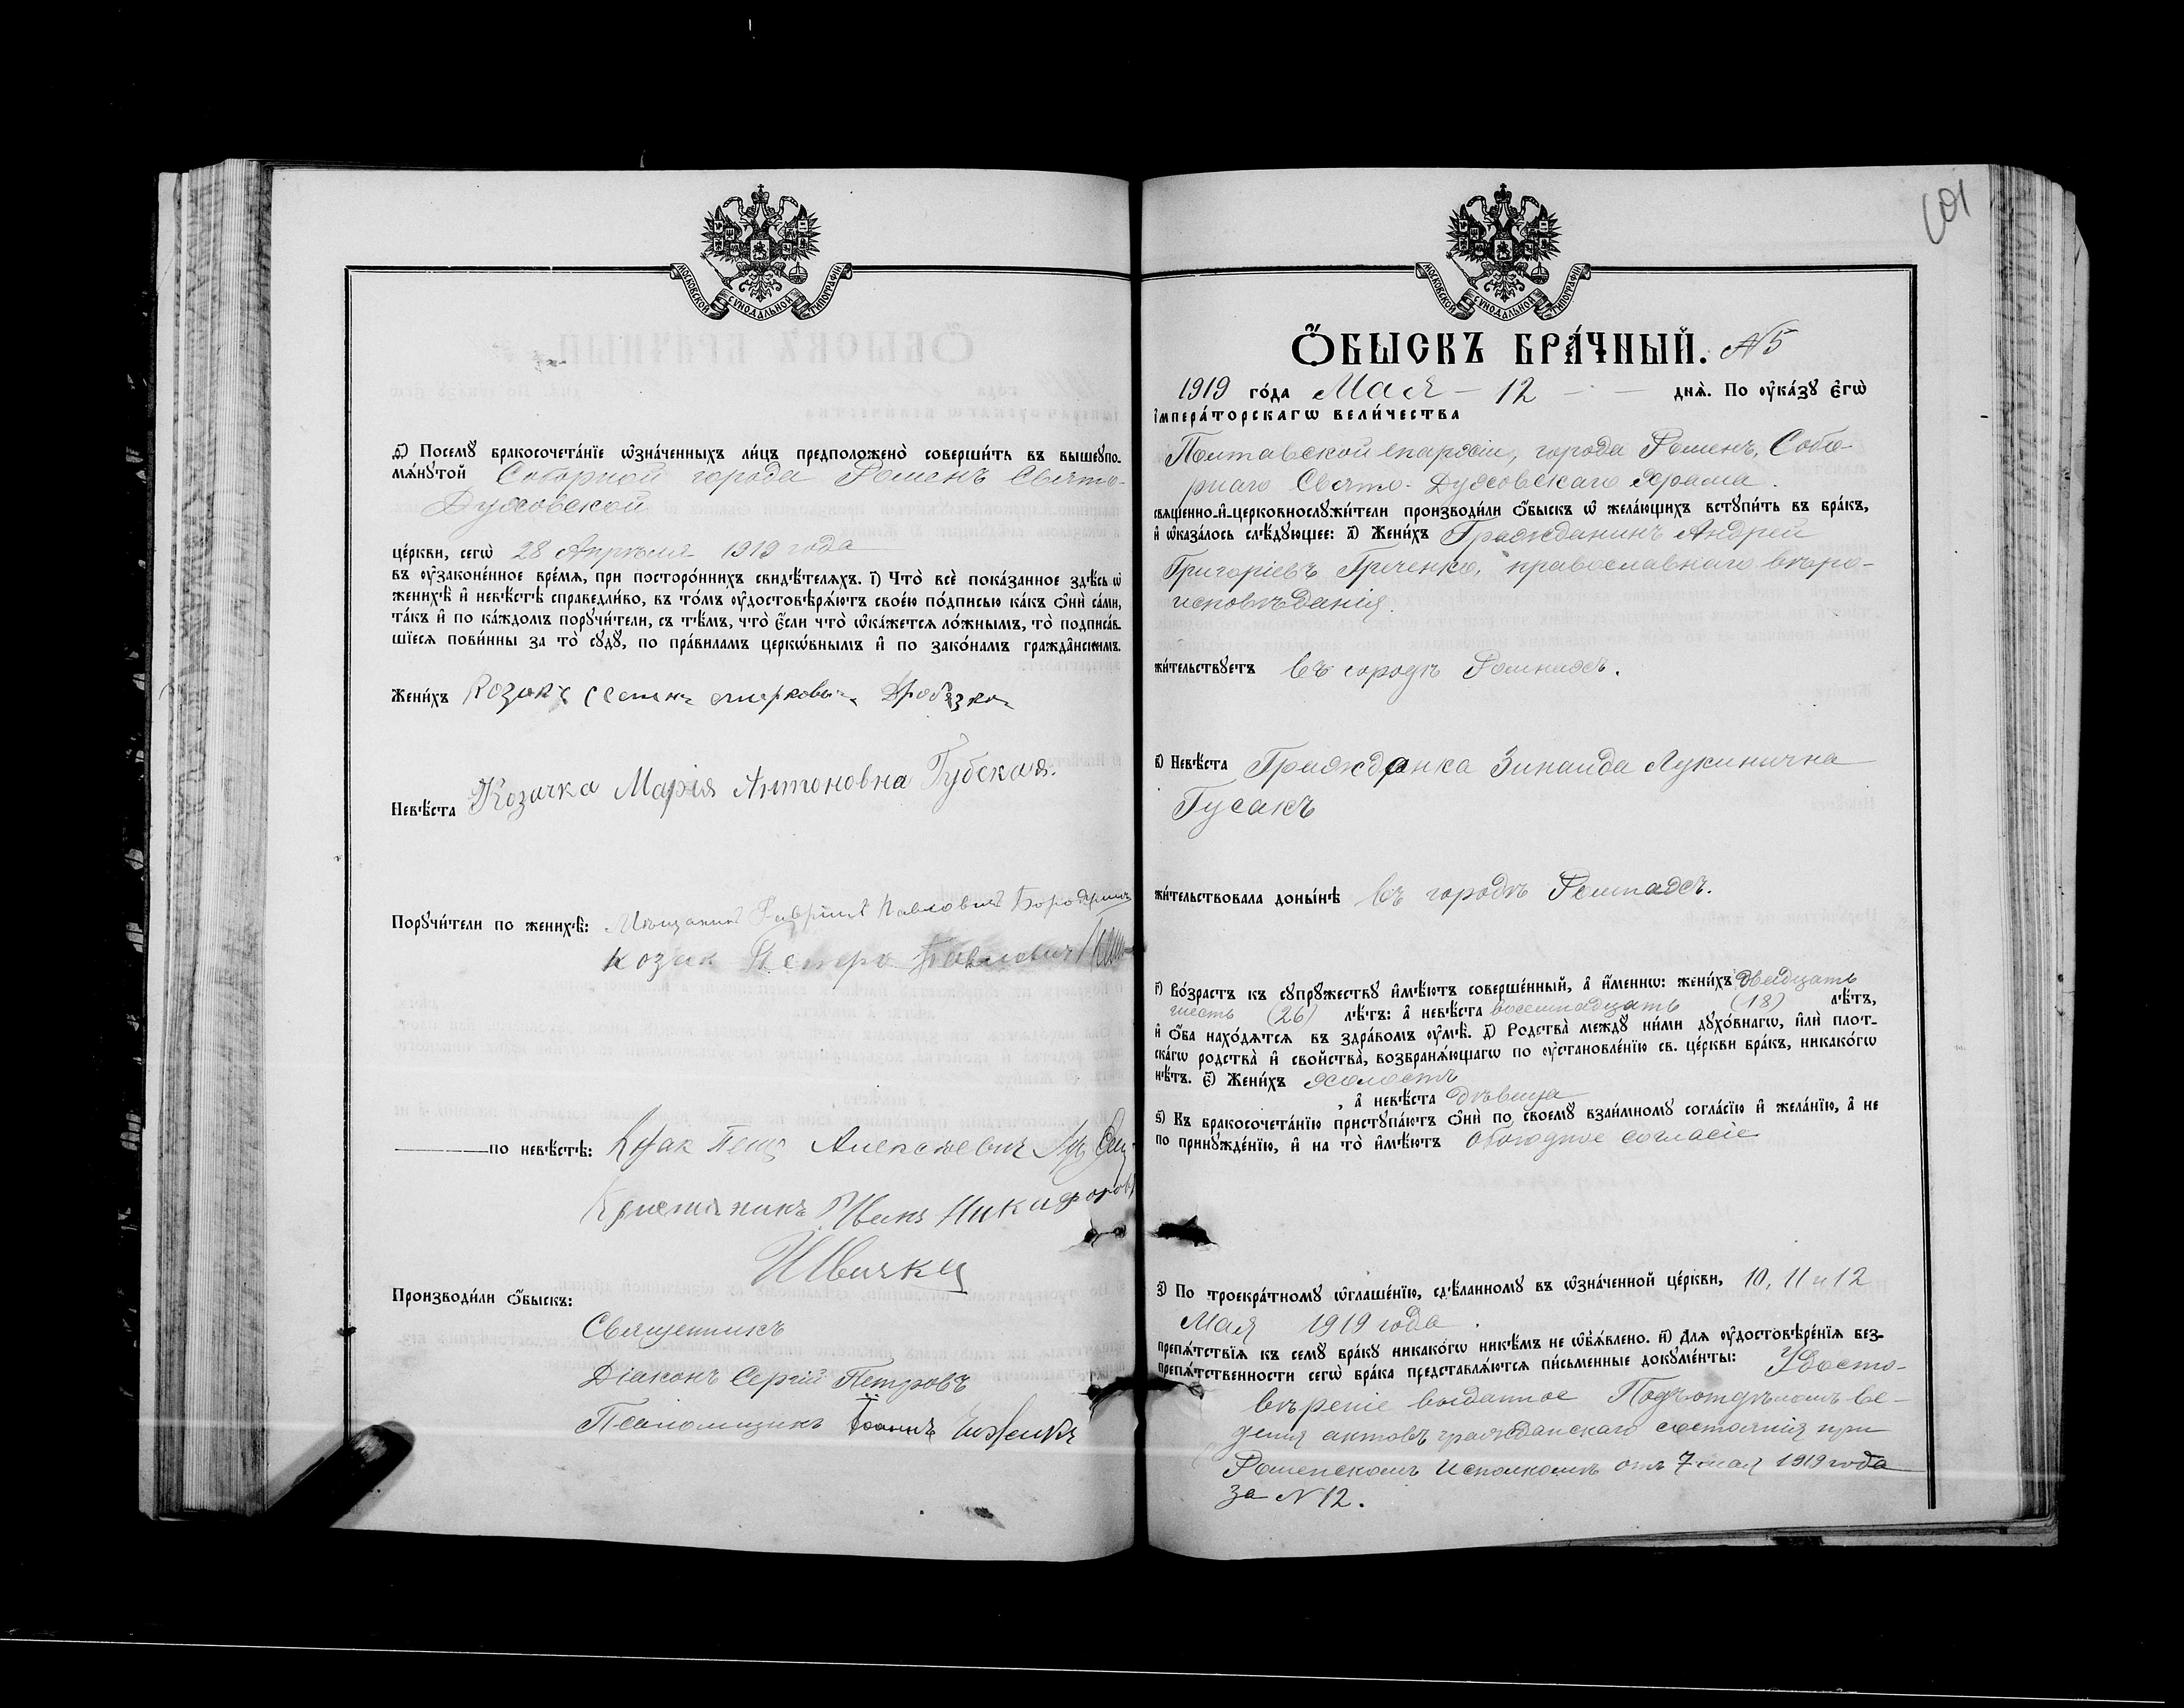 МОСКОВСКОЙ СѴНОДАЛЬНОЙ ТИПОГРАФІИ
ѳ҃) Посемꙋ бракосочета́нїе ѡ҆зна́ченныхъ ли́цъ предположено̀ соверши́ть въ вышеꙋпо-
мѧ́нꙋтой Соборной города Роменъ Свято-
Духовской
це́ркви, сегѡ̀ 28 Апрѣля 1919 года
въ ᲂу҆зако́ненное вре́мѧ, при посторо́ннихъ свидѣ́телѧхъ. і҃) Что̀ всѐ пока́занное здѣ́сь ѡ҆
женихѣ̀ и҆ невѣ́стѣ справедли́во, въ то́мъ ᲂу҆достовѣрѧ́ютъ свое́ю по́дписью ка́къ ѻ҆нѝ са́ми,
та́къ и҆ по ка́ждомъ порꙋчи́тели, съ тѣ́мъ, что̀ є҆́сли что̀ ѡ҆ка́жетсѧ ло́жнымъ, то̀ подписа́в-
шїесѧ пови́нны за то̀ сꙋдꙋ̀, по пра́виламъ церко́внымъ и҆ по зако́намъ гражда́нскимъ.
Жени́хъ Козакъ Дробязко
Невѣ́ста Козачка Марія Антоновна Губская.
Порꙋчи́тели по женихѣ̀: Мѣщанинъ Гавріилъ Павловичъ
козак Петро Павлович
по невѣ́стѣ: Алексѣевич
Крестянинъ Иванъ Никифоров
Швичка
Производи́ли ѻ҆́быскъ:
Священникъ
Діаконъ Сергій Петровъ
Псаломщикъ Іоаннъ
101
МОСКОВСКОЙ СѴНОДАЛЬНОЙ ТИПОГРАФІИ
Ѻ҆́БЫСКЪ БРА́ЧНЫЙ. №5
1919 го́да Мая - 12 - - днѧ̀. По ᲂу҆ка́зꙋ є҆гѡ̀
і҆мпера́торскагѡ вели́чества
Полтавской епархіи, города Роменъ, Собо-
рнаго Свято-Духовскаго Храма.
свѧще́нно-и҆-церковнослꙋжи́тели производи́ли ѻ҆́быскъ ѡ҆ жела́ющихъ встꙋпи́ть въ бра́къ,
и҆ ѡ҆каза́лось слѣ́дꙋющее: а҃) Жени́хъ Гражданинъ Андрей
Григоріевъ Гриченко, православнаго вѣро-
исповѣданія.
жи́тельствꙋетъ въ городѣ Ромнахъ.
в҃) Невѣ́ста Гражданка Зинаида Лукинична
Гусакъ
жи́тельствовала доны́нѣ въ городѣ Ромнахъ.
г҃) Во́зрастъ къ сꙋпрꙋ́жествꙋ и҆мѣ́ютъ соверше́нный, а҆ и҆́меннѡ: жени́хъ двадцать
шесть (26) лѣ́тъ: а҆ невѣ́ста восемнадцать (18) лѣ́тъ,
и҆ ѻ҆́ба нахо́дѧтсѧ въ здра́вомъ ᲂу҆мѣ̀. д҃) Родства̀ междꙋ̀ ни́ми дꙋхо́внагѡ, и҆лѝ пло́т-
скагѡ родства̀ и҆ свойства̀, возбранѧ́ющагѡ по ᲂу҆становле́нїю св. це́ркви бра́къ, никако́гѡ
нѣ́тъ. є҃) Жени́хъ холостъ
, а҆ невѣ́ста дѣвица
ѕ҃) Къ бракосочета́нїю пристꙋпа́ютъ ѻ҆нѝ по своемꙋ̀ взаи́мномꙋ согла́сїю и҆ жела́нїю, а҆ не
по принꙋжде́нїю, и҆ на то̀ и҆мѣ́ютъ обоюдное согласіе
з҃) По троекра́тномꙋ ѡ҆глаше́нїю, сдѣ́ланномꙋ въ ѡ҆зна́ченной це́ркви, 10, 11 и 12
Мая 1919 года.
препѧ́тствїѧ къ семꙋ̀ бра́кꙋ никако́гѡ никѣ́мъ не ѡ҆б̾ѧ́влено. и҃) Длѧ ᲂу҆достовѣре́нїѧ без-
препѧ́тственности сегѡ̀ бра́ка представлѧ́ютсѧ пи́сьменные докꙋме́нты: Удосто-
вѣреніе выданное Подъотдѣломъ ве-
денія актовъ гражданскаго состоянія при
Роменскомъ Исполкомѣ отъ 7 мая 1919 года
за №12.